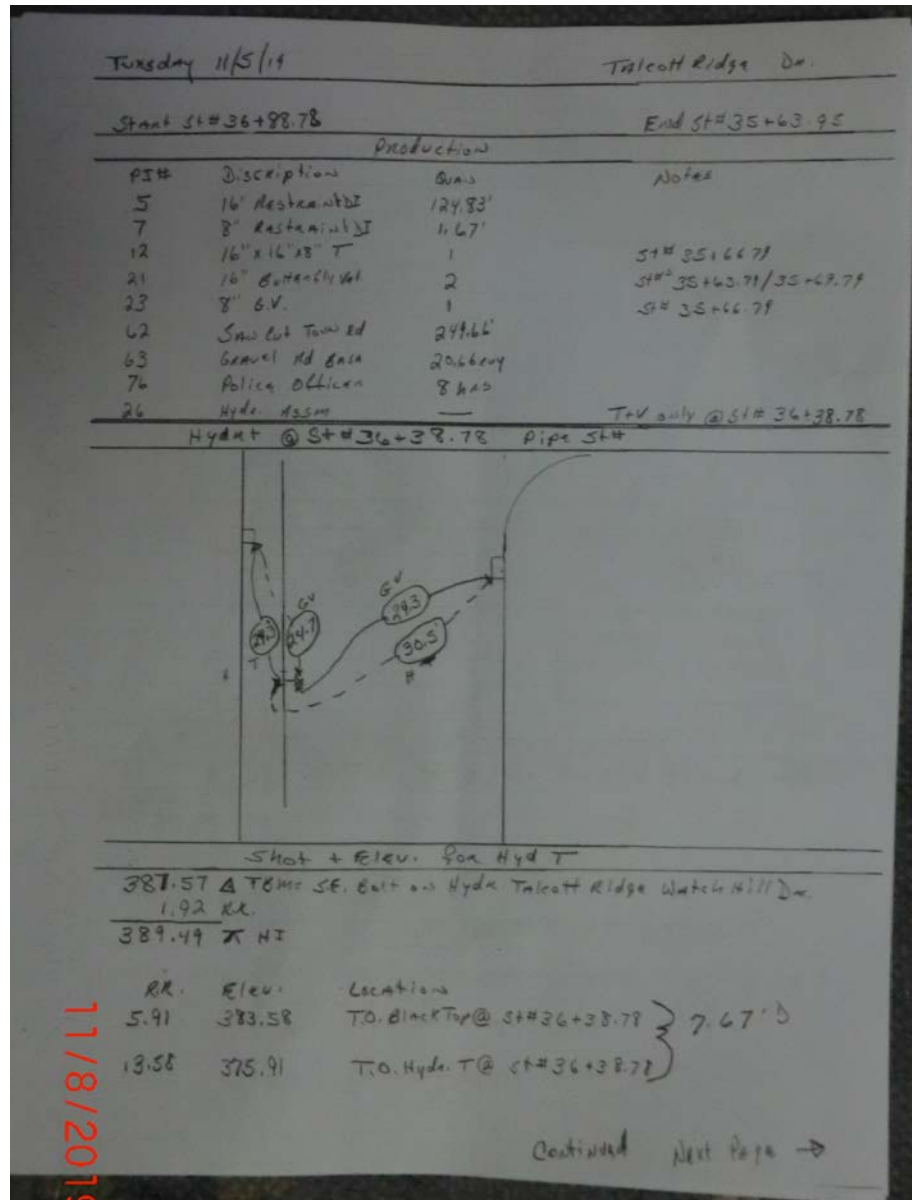 Tuesday 11/5/19 Talcott Ridge Dr.
Start St#36+88.78 End St#35+63.95
Production
PI# Discription Quan Notes
5 16" Restraint DI 124.83'
7 8" Restraint DI 1.67'
12 16"x16"x8" T 1 St# 35+66.79
21 16" Butterfly Val. 2 St#s 35+63.79/35+69.79
23 8" G.V. 1 St# 35+66.79
62 Saw Cut Town Rd 249.66'
63 Gravel Rd Base 20.66
76 Police Officer 8 hrs
26 Hydr. Assm — T+V only @ St# 36+38.78
Hydnt @ St#36+38.78 Pipe St#
GV
29.3
GV
29.3
24.7
30.5'
T
H
Shot + Elev. for Hyd T
387.57 Δ TBM= S.E. Bolt on Hydr Talcott Ridge Watch Hill Dr.
1.92 R.R.
389.49 HI
R.R. Elev. Location
5.91 383.58 T.O. BlackTop @ St#36+38.78 } 7.67' D
13.58 375.91 T.O. Hydr. T @ St#36+38.78
Continued Next Page →
11/8/2019